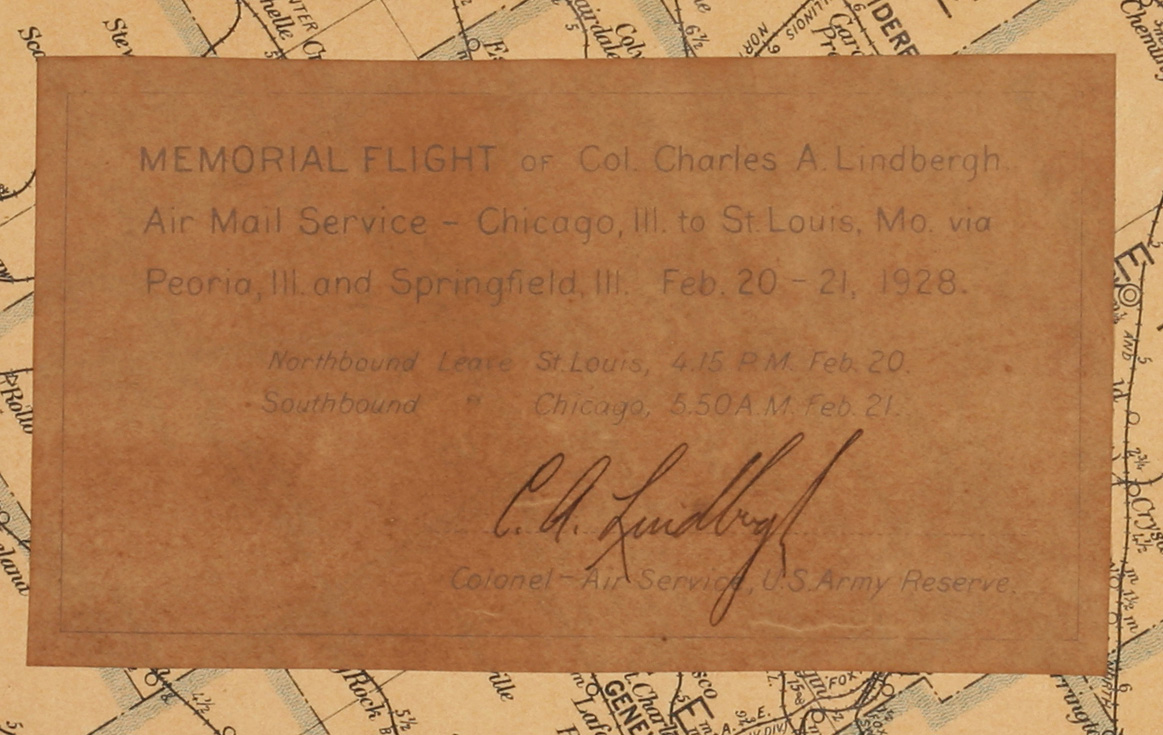 MEMORIAL FLIGHT OF Col. Charles A. Lindbergh.
Air Mail Service – Chicago, Ill. to St. Louis, Mo. via
Peoria, Ill. and Springfield, Ill. Feb. 20 – 21, 1928.
Northbound Leave St. Louis, 4.15 P.M. Feb. 20.
Southbound " Chicago, 5.50 A.M. Feb. 21.
C. A. Lindbergh
Colonel – Air Service, U.S. Army Reserve.